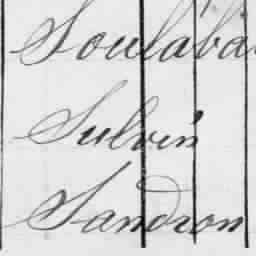 Soulaba
Sulvin
Sandron